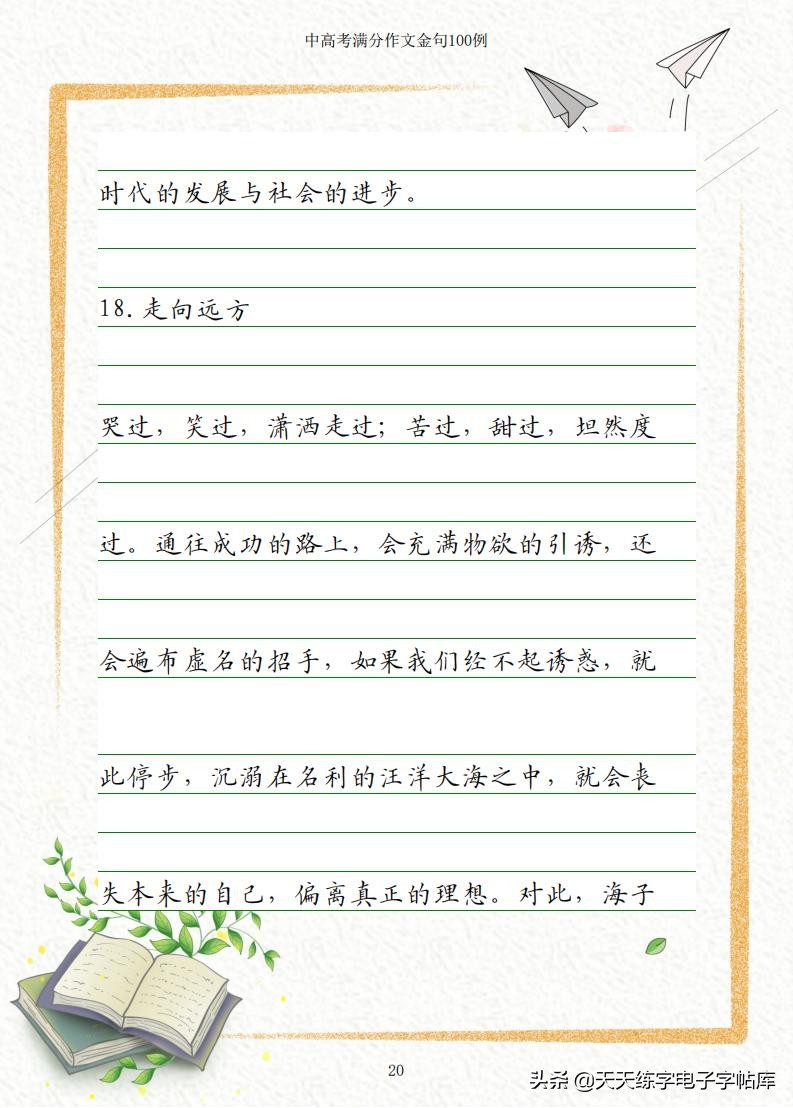 中高考满分作文金句100例
时代的发展与社会的进步。
18.走向远方
哭过，笑过，潇洒走过；苦过，甜过，坦然度
过。通往成功的路上，会充满物欲的引诱，还
会遍布虚名的招手，如果我们经不起诱惑，就
此停步，沉溺在名利的汪洋大海之中，就会丧
失本来的自己，偏离真正的理想。对此，海子
20
头条 @天天练字电子字帖库